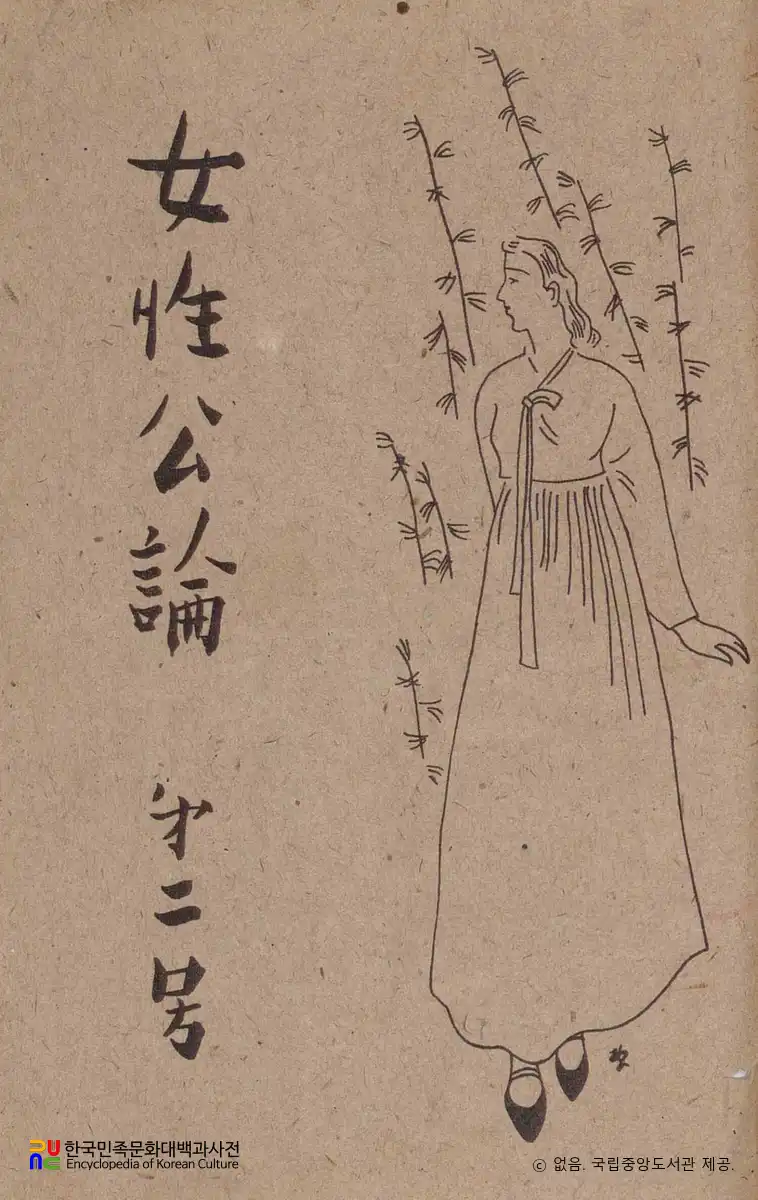 女性公論
第二号
한국민족문화대백과사전
Encyclopedia of Korean Culture
© 없음. 국립중앙도서관 제공.